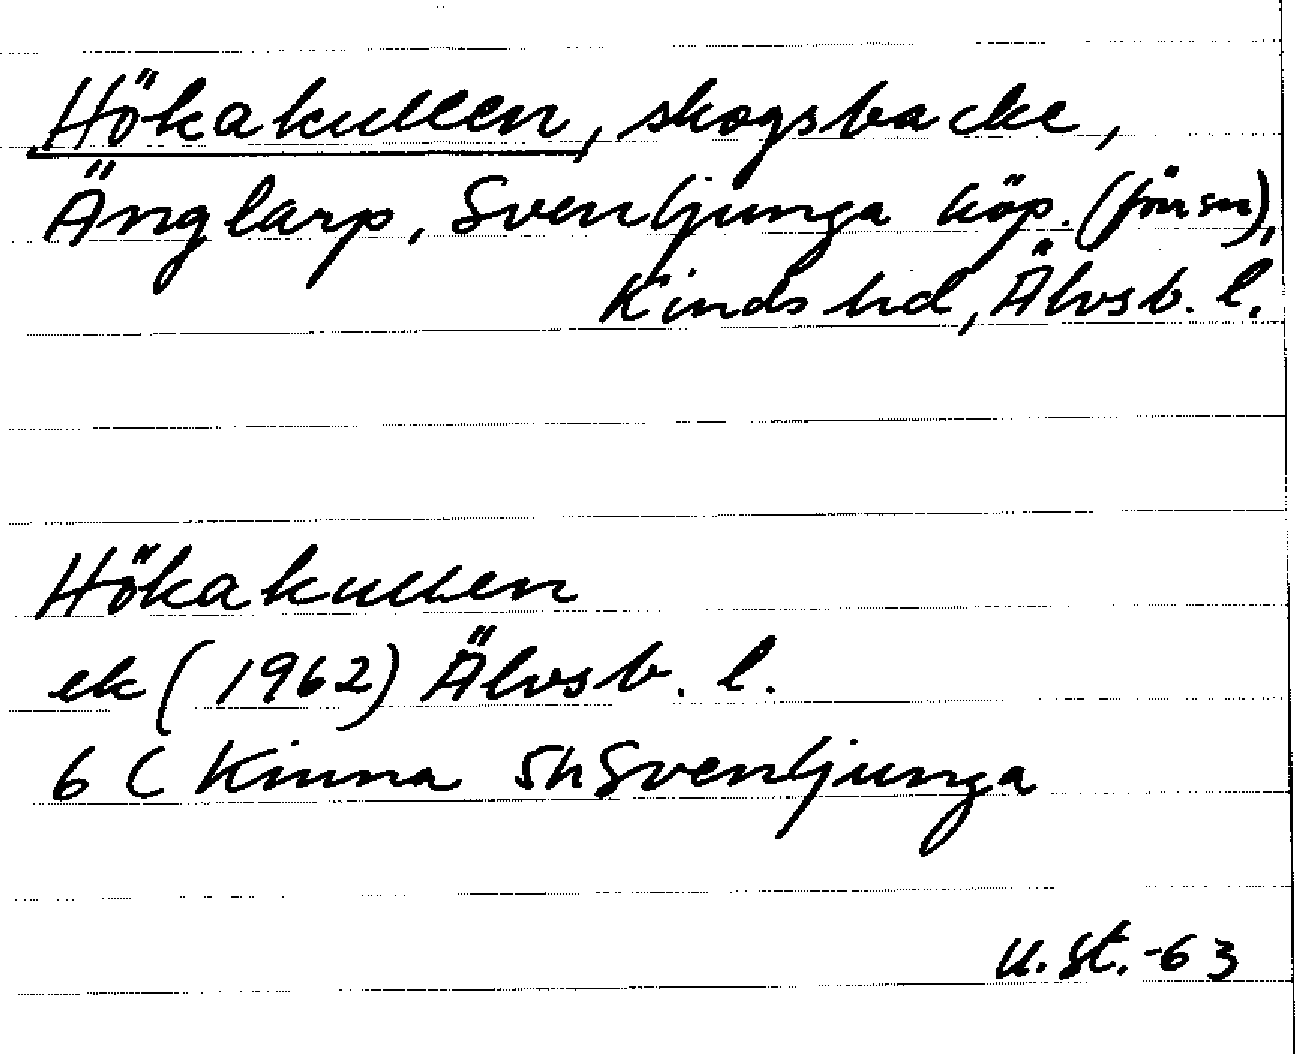 Hökakullen, skogsbacke,
Änglarp, Svenljunga köp. (förr sn),
Kinds hd, Älvsb. l.
Hökakullen
ek (1962) Älvsb. l.
6 C Kinna 5h Svenljunga
U. St. -63